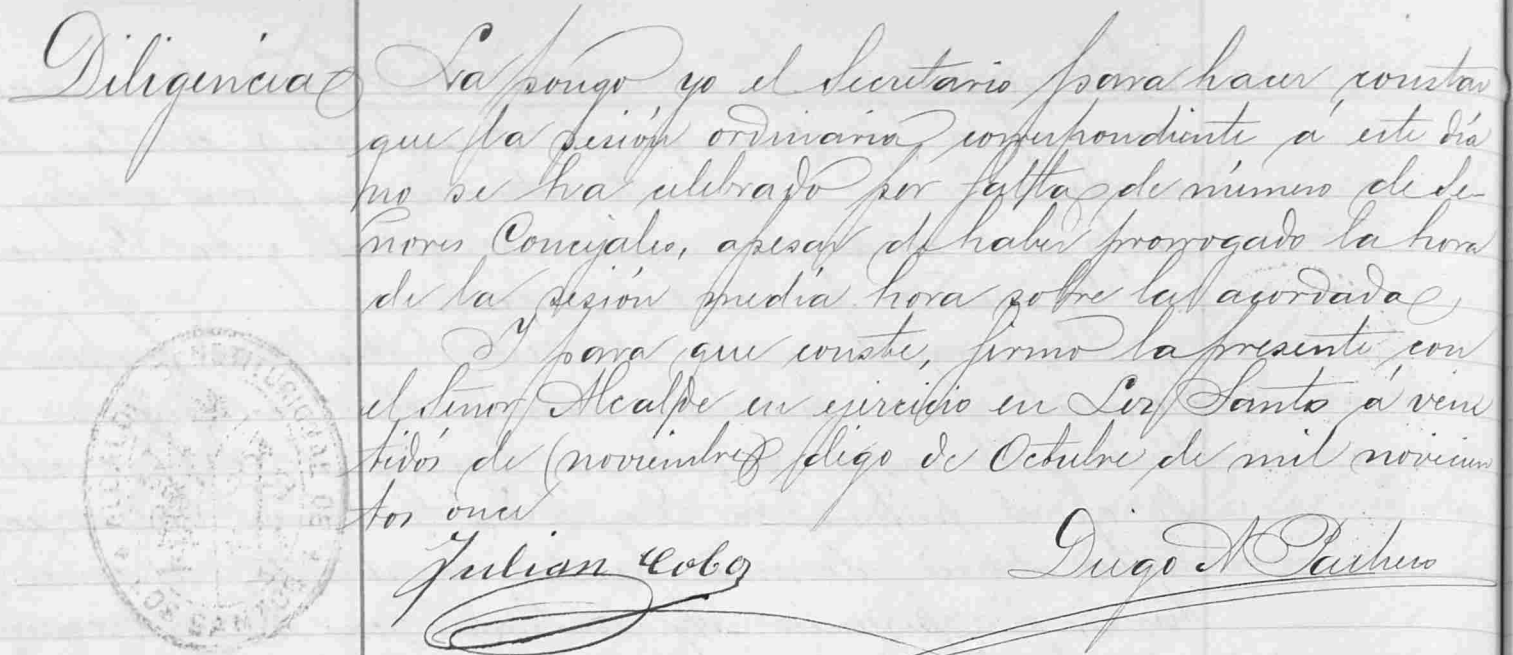 Diligencia
La pongo yo el Secretario para hacer constar
que la sesión ordinaria correspondiente á este día
no se ha celebrado por falta de número de Se-
ñores Concejales, apesar de haber prorrogado la hora
de la sesión media hora sobre la acordada
Y para que conste, firmo la presente con
el Señor Alcalde en ejercicio en Los Santos á vein
tidós de (noviembre) digo de Octubre de mil novecien
tos once
Julian Cobo
Diego N Pacheco
ALCALDIA CONSTITUCIONAL DE
LOS SANTOS